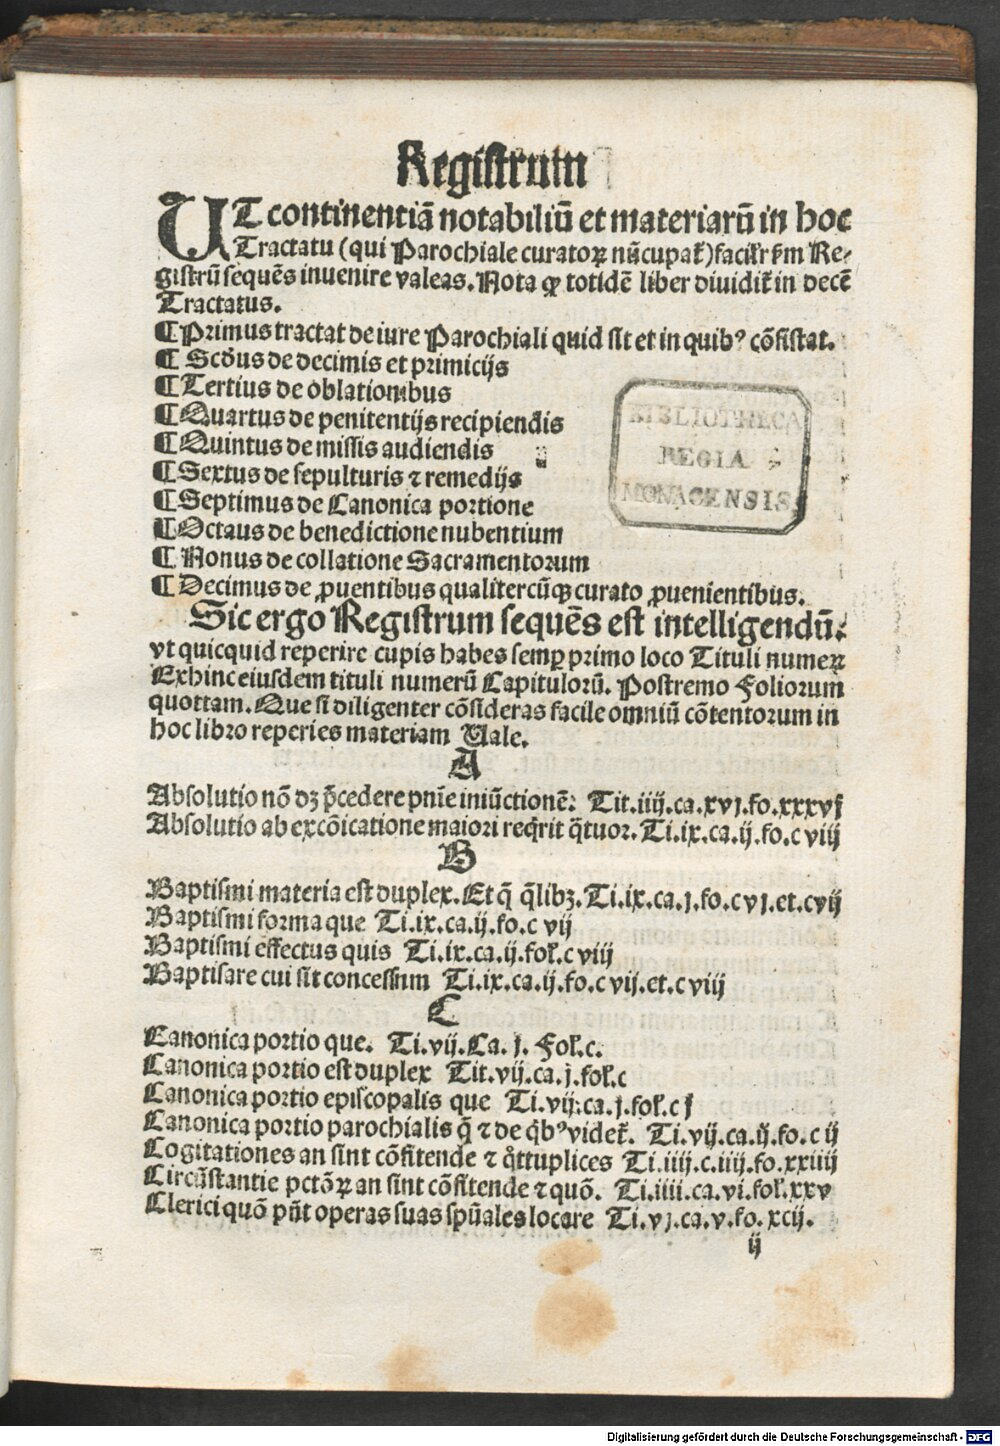 Registrum
UT continentiā notabiliū et materiarū in hoc
Tractatu (qui Parochiale curatoꝝ nūcupat̄) facil̛r t̄m Re⸗
gistrū sequēs invenire valeas. Nota ꝙ totidē liber dividit̄ in decē
Tractatus.
¶ Primus tractat de iure Parochiali quid sit et in quibꝰ cōsistat.
¶ Scd̄us de decimis et primicijs
¶ Tertius de oblationibus
¶ Quartus de penitentijs recipiendis
¶ Quintus de missis audiendis
¶ Sextus de sepulturis ⁊ remedijs
¶ Septimus de Canonica portione
¶ Octaus de benedictione nubentium
¶ Nonus de collatione Sacramentorum
¶ Decimus de ꝓuentibus qualitercūqꝫ curato ꝓuenientibus.
Sic ergo Registrum sequēs est intelligendū.
vt quicquid reperire cupis habes semꝑ primo loco Tituli numeꝝ
Exhinc eiusdem tituli numerū Capitulorū. Postremo Foliorum
quottam. Que si diligenter cōsideras facile omniū cōtentorum in
hoc libro reperies materiam Uale.
A
Absolutio nō dꝫ p̄cedere pnīe iniūctionē: Tit.iiij.ca.xvj.fo.xxxvj
Absolutio ab excōicatione maiori reqͥrit qͣtuor. Ti.ix.ca.ij.fo.c viij
B
Baptismi materia est duplex. Et q̄ qͣlibꝫ. Ti.ix.ca.j.fo.c vj.et.cvij
Baptismi forma que Ti.ix.ca.ij.fo.c vij
Baptismi effectus quis Ti.ix.ca.ij.fol̛.c viij
Baptisare cui sit concessum Ti.ix.ca.ij.fo.c vij.et.c viij
C
Canonica portio que. Ti.vij.Ca.j.Fol̛.c.
Canonica portio est duplex Tit.vij.ca.j.fol̛.c
Canonica portio episcopalis que Ti.vij.ca.j.fol̛.c j
Canonica portio parochialis q̄ ⁊ de qͥbꝰ videt̄. Ti.vij.ca.ij.fo.c ij
Cogitationes an sint cōfitende ⁊ qͣttuplices Ti.iiij.c.iiij.fo.xxiiij
Circūstantie pctōꝝ an sint cōfitende ⁊ quō. Ti.iiii.ca.vi.fol̛.xxv
Clerici quō pn̄t operas suas spūales locare Ti.vj.ca.v.fo.xcij.
ij
BIBLIOTHECA
REGIA
MONACENSIS.
Digitalisierung gefördert durch die Deutsche Forschungsgemeinschaft - DFG